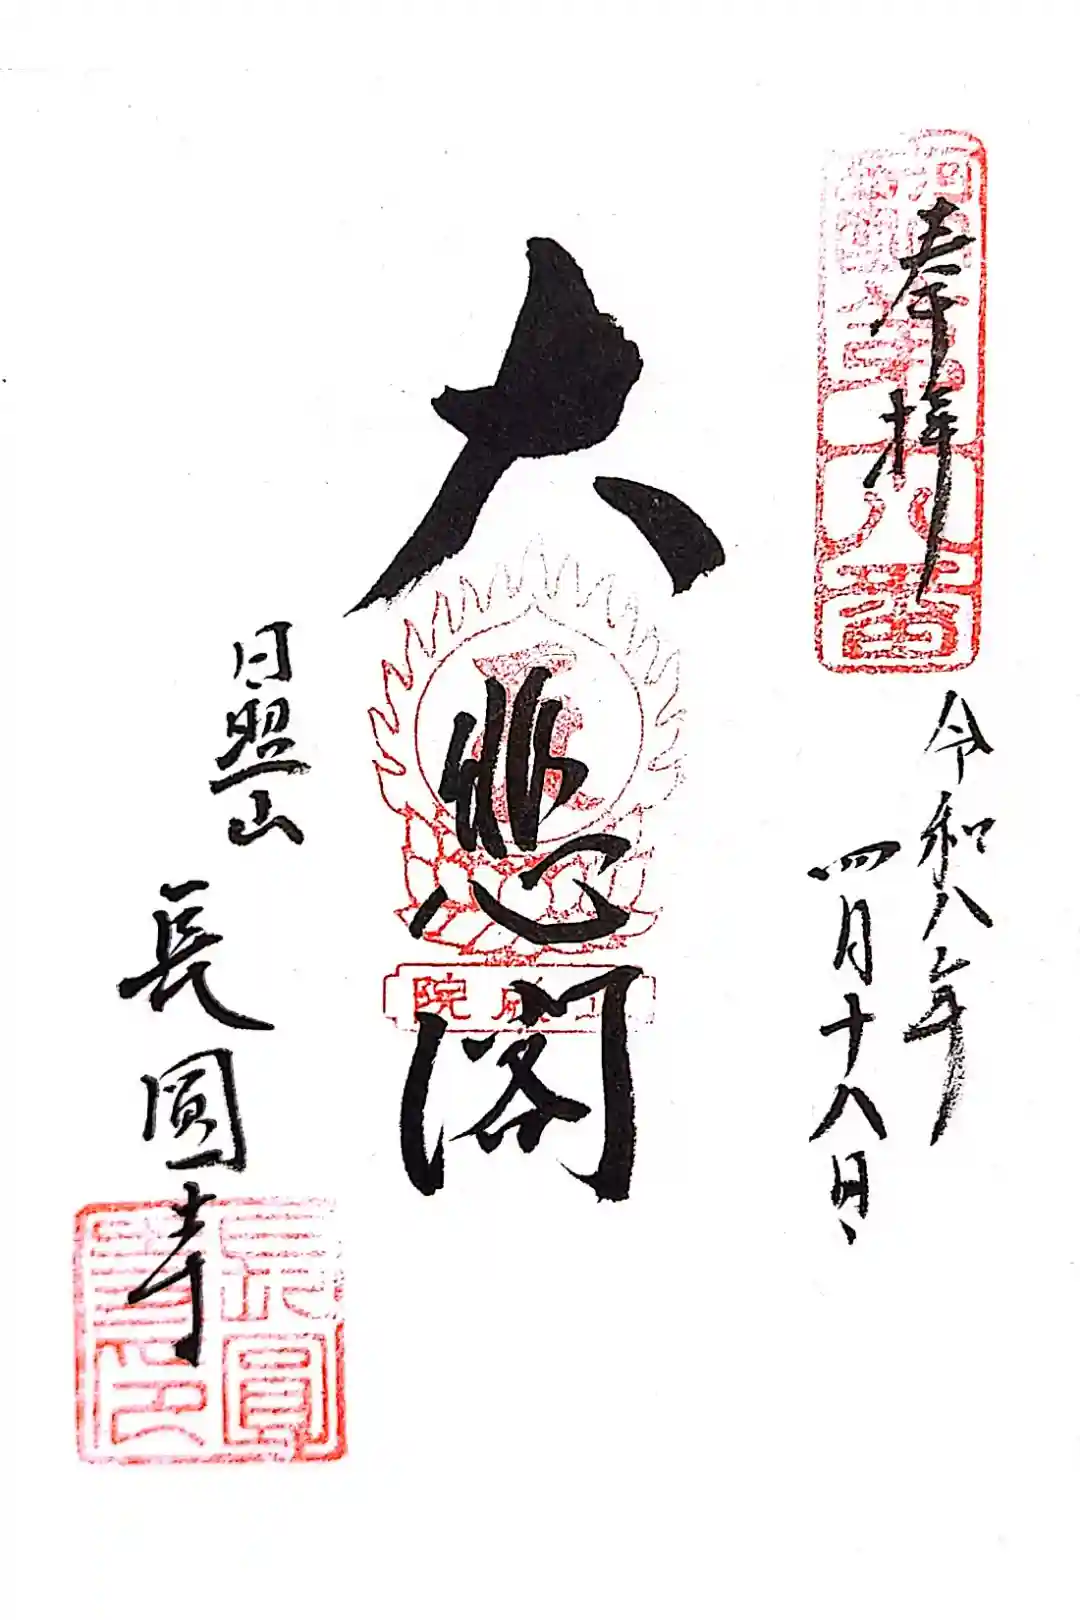 奉拝
令和八年
四月十八日
大悲閣
日照山
長圓寺
長圓寺印